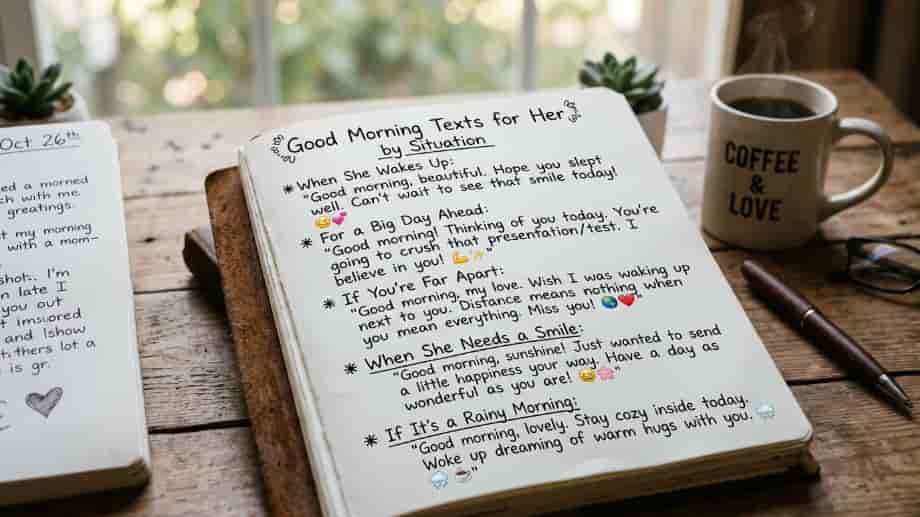 Oct 26th
ed a morned
ch with me
greatings.
t my morning
with a mom-
shot:. I'm
n late I
you out
and lshow
lot a
is gr.
Good Morning Texts for Her
by Situation
* When She Wakes Up:
"Good morning, beautiful. Hope you slept
well. Can't wait to see that smile today!
😊💕
* For a Big Day Ahead:
"Good morning! Thinking of you today. You're
going to crush that presentation/test. I
believe in you! 💪✨"
* If You're Far Apart:
"Good morning, my love. Wish I was waking up
next to you. Distance means nothing when
you mean everything. Miss you! 🌍❤️"
* When She Needs a Smile:
"Good morning, sunshine! Just wanted to send
a little happiness your way. Have a day as
wonderful as you are! 😄🌸"
* If It's a Rainy Morning:
"Good morning, lovely. Stay cozy inside today.
Woke up dreaming of warm hugs with you. 🌧️
🌧️ ☕"
COFFEE
&
LOVE